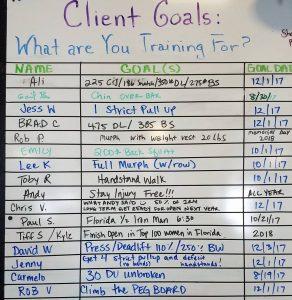 Client Goals:
What are You Training For?
NAME GOAL(S) GOAL DATE
Ali 225 DL/275# BS 12/1/17
Chin over BAR 8/30/17
Jess W 1 Strict Pull up 12/1/17
BRAD C 475 DL / 385 BS 12/1/17
Rob P Murph with weight vest 20 lbs Memorial Day 2018
EMILY 200# Back Squat 10/1/17
Lee K Full Murph (w/row) 10/1/17
Toby R Handstand Walk 10/1/17
Andy Stay Injury Free!!! ALL YEAR
Chris V. WHAT ANDY SAID 50 % OF 24M 12/1/17
LONG TERM GET READY FOR OPEN NEXT YEAR
Paul S. Florida 1/2 Iron Man 6:30 10/21/17
Tiff S / Kyle Finish in Top 100 women in Florida 2018
David W Press/Deadlift 110%/250% BW 12/3/17
Jenny Get 4 strict pullup and deficit 12/1/17
(no bands) handstands!
Carmelo 30 DU unbroken 8/19/17
ROB V Climb the PEG BOARD 12/1/17